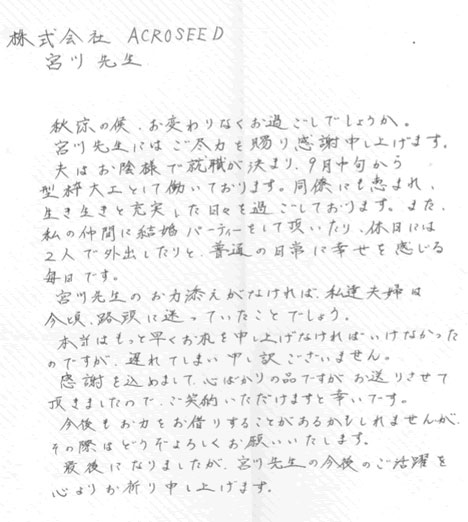 株式会社 ACROSEED
宮川先生
秋涼の候、お変わりなくお過ごしでしょうか。
宮川先生にはご尽力を賜り感謝申し上げます。
夫はお陰様で就職が決まり、9月中旬から
型枠大工として働いております。同僚にも恵まれ、
生き生きと充実した日々を過ごしております。また、
私の仲間に結婚パーティーをして頂いたり、休日には
2人で外出したりと、普通の日常に幸せを感じる
毎日です。
宮川先生のお力添えがなければ、私達夫婦は
今頃、路頭に迷っていたことでしょう。
本当はもっと早くお礼を申し上げなければいけなかった
のですが、遅れてしまい申し訳ございません。
感謝を込めまして、心ばかりの品ですがお送りさせて
頂きましたので、ご笑納いただけますと幸いです。
今後もお力をお借りすることがあるかもしれませんが、
その際はどうぞよろしくお願いいたします。
最後になりましたが、宮川先生の今後のご活躍を
心よりお祈り申し上げます。